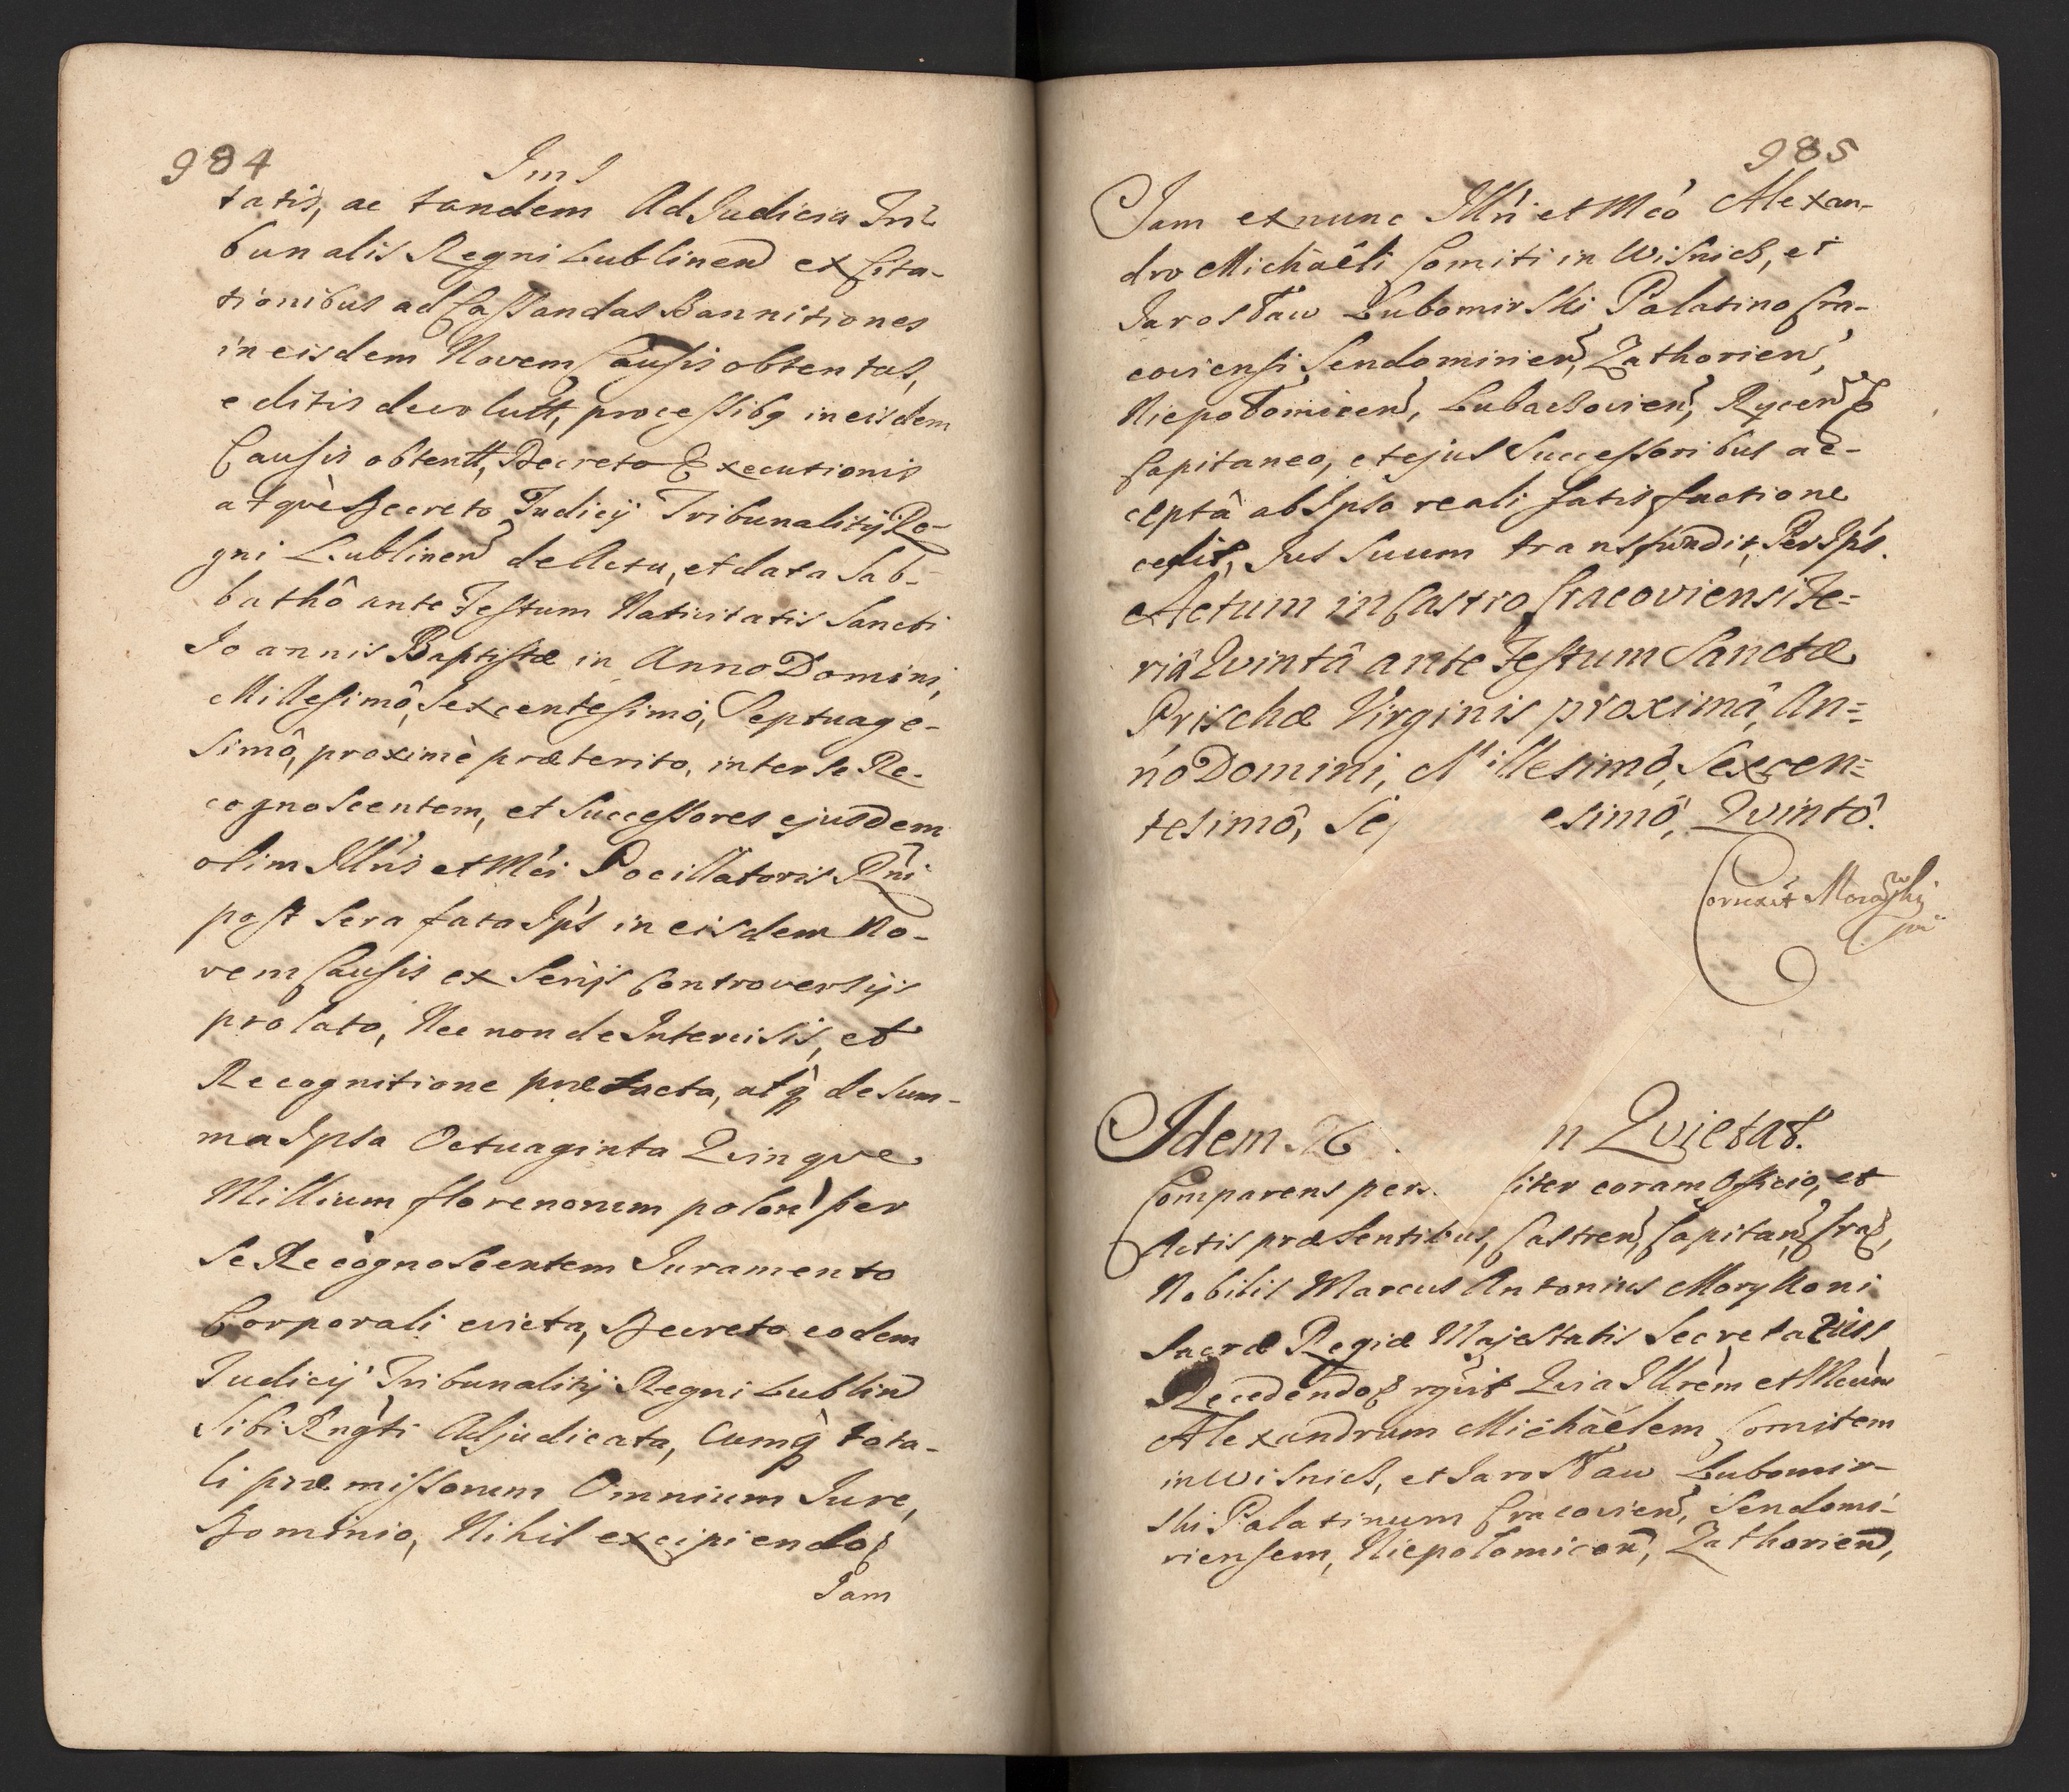 984
tatis, ac tandem Ad Judicia Tri=
bunalis Regni Lublinen ex Cita-
tionibus ad Cassandas Bannitiones
in eisdem Novem Causis obtentas,
editis devolutt, processibq in eisdem
Causis obtentt, Decreto Executionis
atque Decreto Judicij Tribunalitij Re-
gni Lublinen de Actu, et data Sab-
bathô ante Festum Nativitatis Sancti
Joannis Baptistæ in Anno Domini,
Millesimô, Sexcentesimô, Septuage-
simô, proximè præterito, inter se Re-
cognoscentem, et Successores ejusdem
olim Illris et Mci Pocillatoris Rni
post sera fata Ips in eisdem No-
vem Causis ex Serijs Controversijs
prolato, Nec non de Intercisis, et
Recognitione prætacta, atq de Sum-
ma Ipsa Octuaginta Qvinqve
Millium florenorum polon per
Se Recognoscentem Juramento
Corporali evicta, Decreto eodem
Judicij Tribunalitij Regni Lublin
Sibi Rngti Adjudicata, Cumq tota-
li præmissorum Omnium Jure,
Dominio, Nihil excipiendo
Jam
985
Jam ex nunc Illri et Mco Alexan-
dro Michaëli Comiti in Wisnicz, et
Jarosław Lubomirski Palatino Cra-
coviensi Sendomirien, Zathorien,
Niepołomicen, Lubaczovien, Rycen
Capitaneo, et ejus Successoribus ac-
ceptâ ab Ipso reali satisfactione
cessit, Jus Suum transfundit, Per Ips.
Actum in Castro Cracoviensi Fe=
riâ Qvintâ ante Festum Sanctæ
Prischæ Virginis proximâ, An=
no Domini, Millesimô, Sexcen=
tesimô, Se esimô, Qvintô.
Correxit
Idem n Qvietat.
Comparens pers liter coram Officio, et
Actis præsentibus, Castren, Capitan, Cra,
Nobilis Marcus Antonius Morykoni
Sacræ Regiæ Majestatis Secretarius
Recedendo rgvit Qvia Illrem et Mcum
Alexandrum Michaëlem Comitem
in Wisnicz, et Jarosław Lubomir-
ski Palatinum Cracovien, Sendomi-
riensem, Niepolomicen, Zathorien,